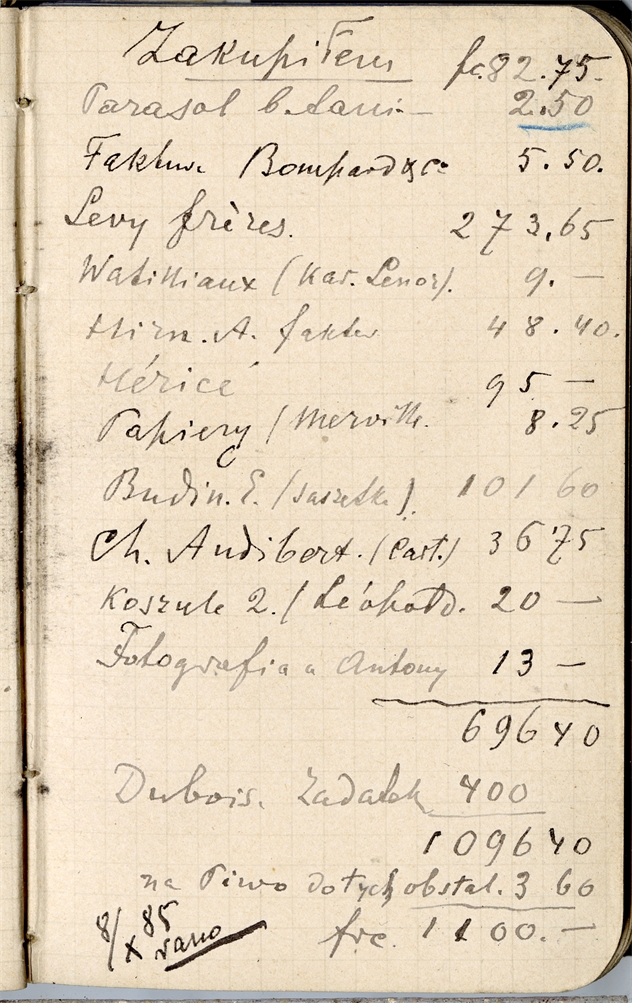 Zakupiłem fc. 82.75.
Parasol b. tani — 2.50
Faktur. Bompard & Co 5.50.
Levy frères. 273,65
Watilliaux (Kar. Lenor). 9. —
Hirn. A. faktur 48.40.
Héricé 95 —
Papiery / Merville. 8.25
Budin. E. (saszetk.). 101 60
Ch. Audibert. (Cart.) 36 75
Koszule 2. / Léopold. 20 —
Fotografia u Antony 13 —
696 40
Dubois. Zadatek 400
1096 40
na Piwo dotych obstal. 3 60
8/X 85 frc. 1100. —
rano